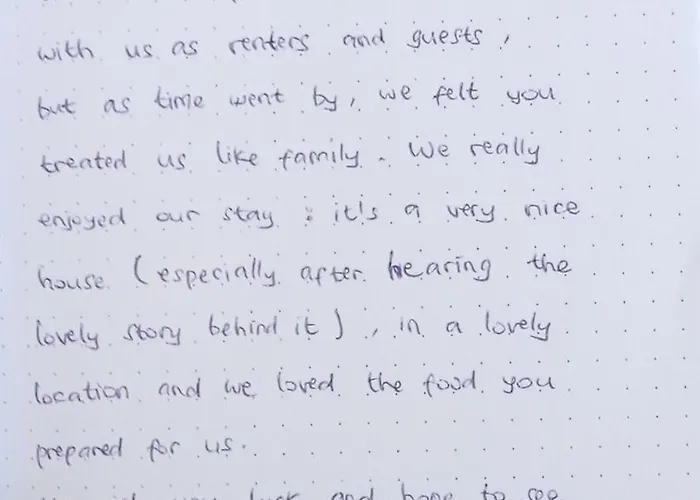 with us as renters and guests,
but as time went by, we felt you
treated us like family. We really
enjoyed our stay: it's a very nice
house (especially after hearing the
lovely story behind it), in a lovely
location and we loved the food you
prepared for us.
luck and hope to see